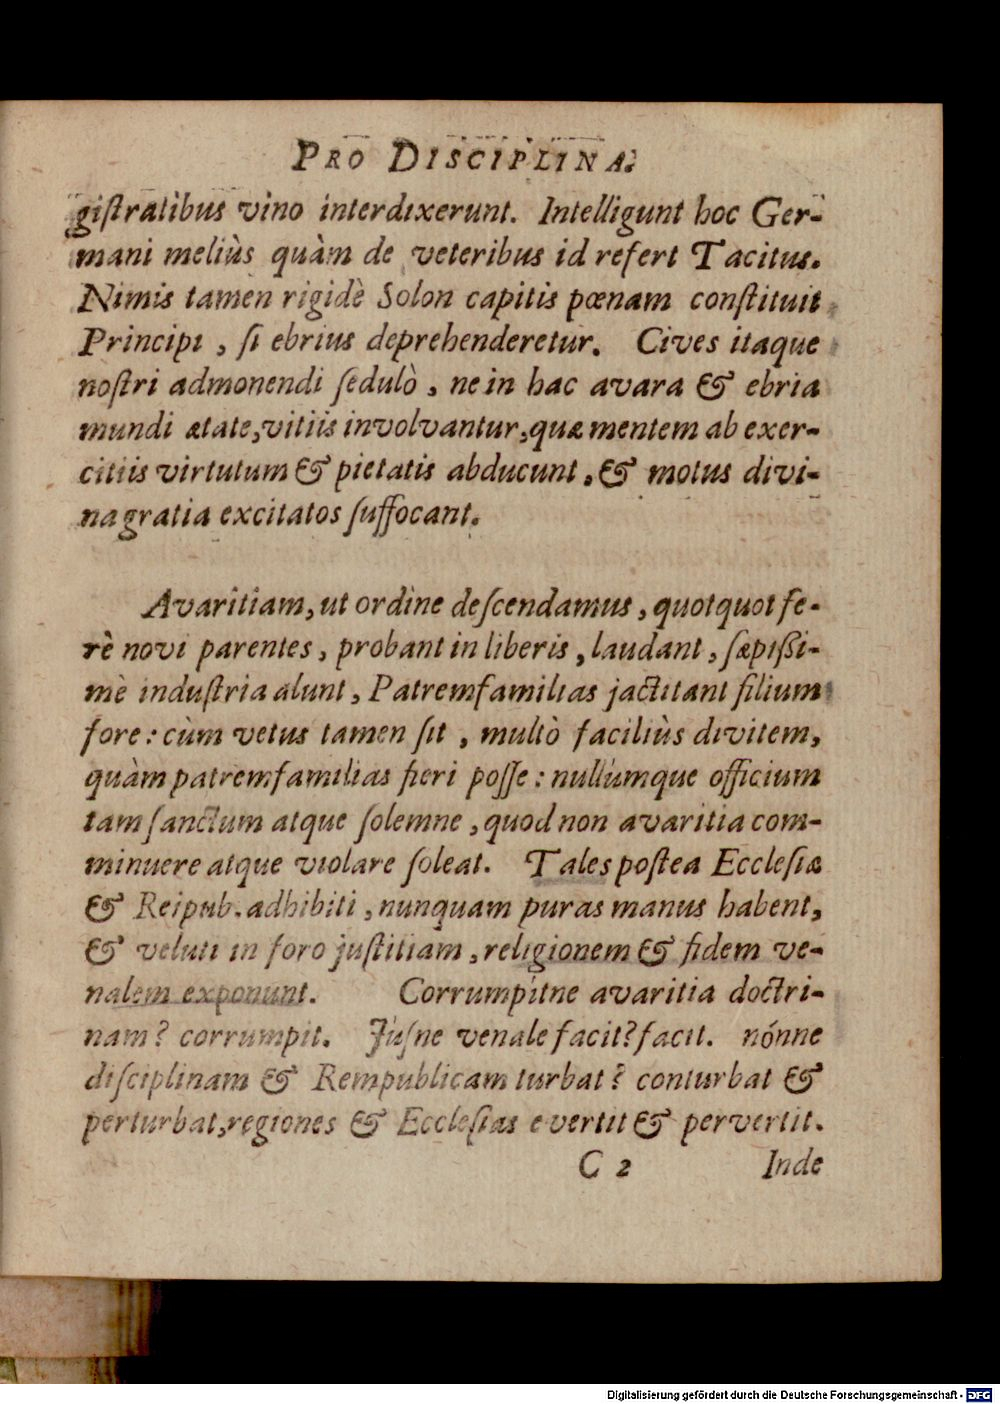 PRO DISCIPLINA.
giſtratibus vino interdixerunt. Intelligunt hoc Ger-
mani meliùs quàm de veteribus id refert Tacitus.
Nimis tamen rigidè Solon capitis pœnam conſtituit
Principi, ſi ebrius deprehenderetur. Cives itaque
noſtri admonendi ſedulò, ne in hac avara & ebria
mundi ætate, vitiis involvantur, quæ mentem ab exer-
citiis virtutum & pietatis abducunt, & motus divi-
na gratia excitatos ſuffocant.
Avaritiam, ut ordine deſcendamus, quotquot fe-
rè novi parentes, probant in liberis, laudant, ſæpiſſi-
mè induſtria alunt, Patremfamilias jactitant filium
fore: cùm vetus tamen ſit, multò faciliùs divitem,
quàm patremfamilias fieri poſſe: nullumque officium
tam ſanctum atque ſolemne, quod non avaritia com-
minuere atque violare ſoleat. Tales poſtea Eccleſiæ
& Reipub. adhibiti, nunquam puras manus habent,
& veluti in foro juſtitiam, religionem & fidem ve-
nalem exponunt. Corrumpitne avaritia doctri-
nam? corrumpit. Juſne venale facit? facit. nónne
diſciplinam & Rempublicam turbat? conturbat &
perturbat, regiones & Eccleſias evertit & pervertit.
C 2 Inde
Digitalisierung gefördert durch die Deutsche Forschungsgemeinschaft - DFG